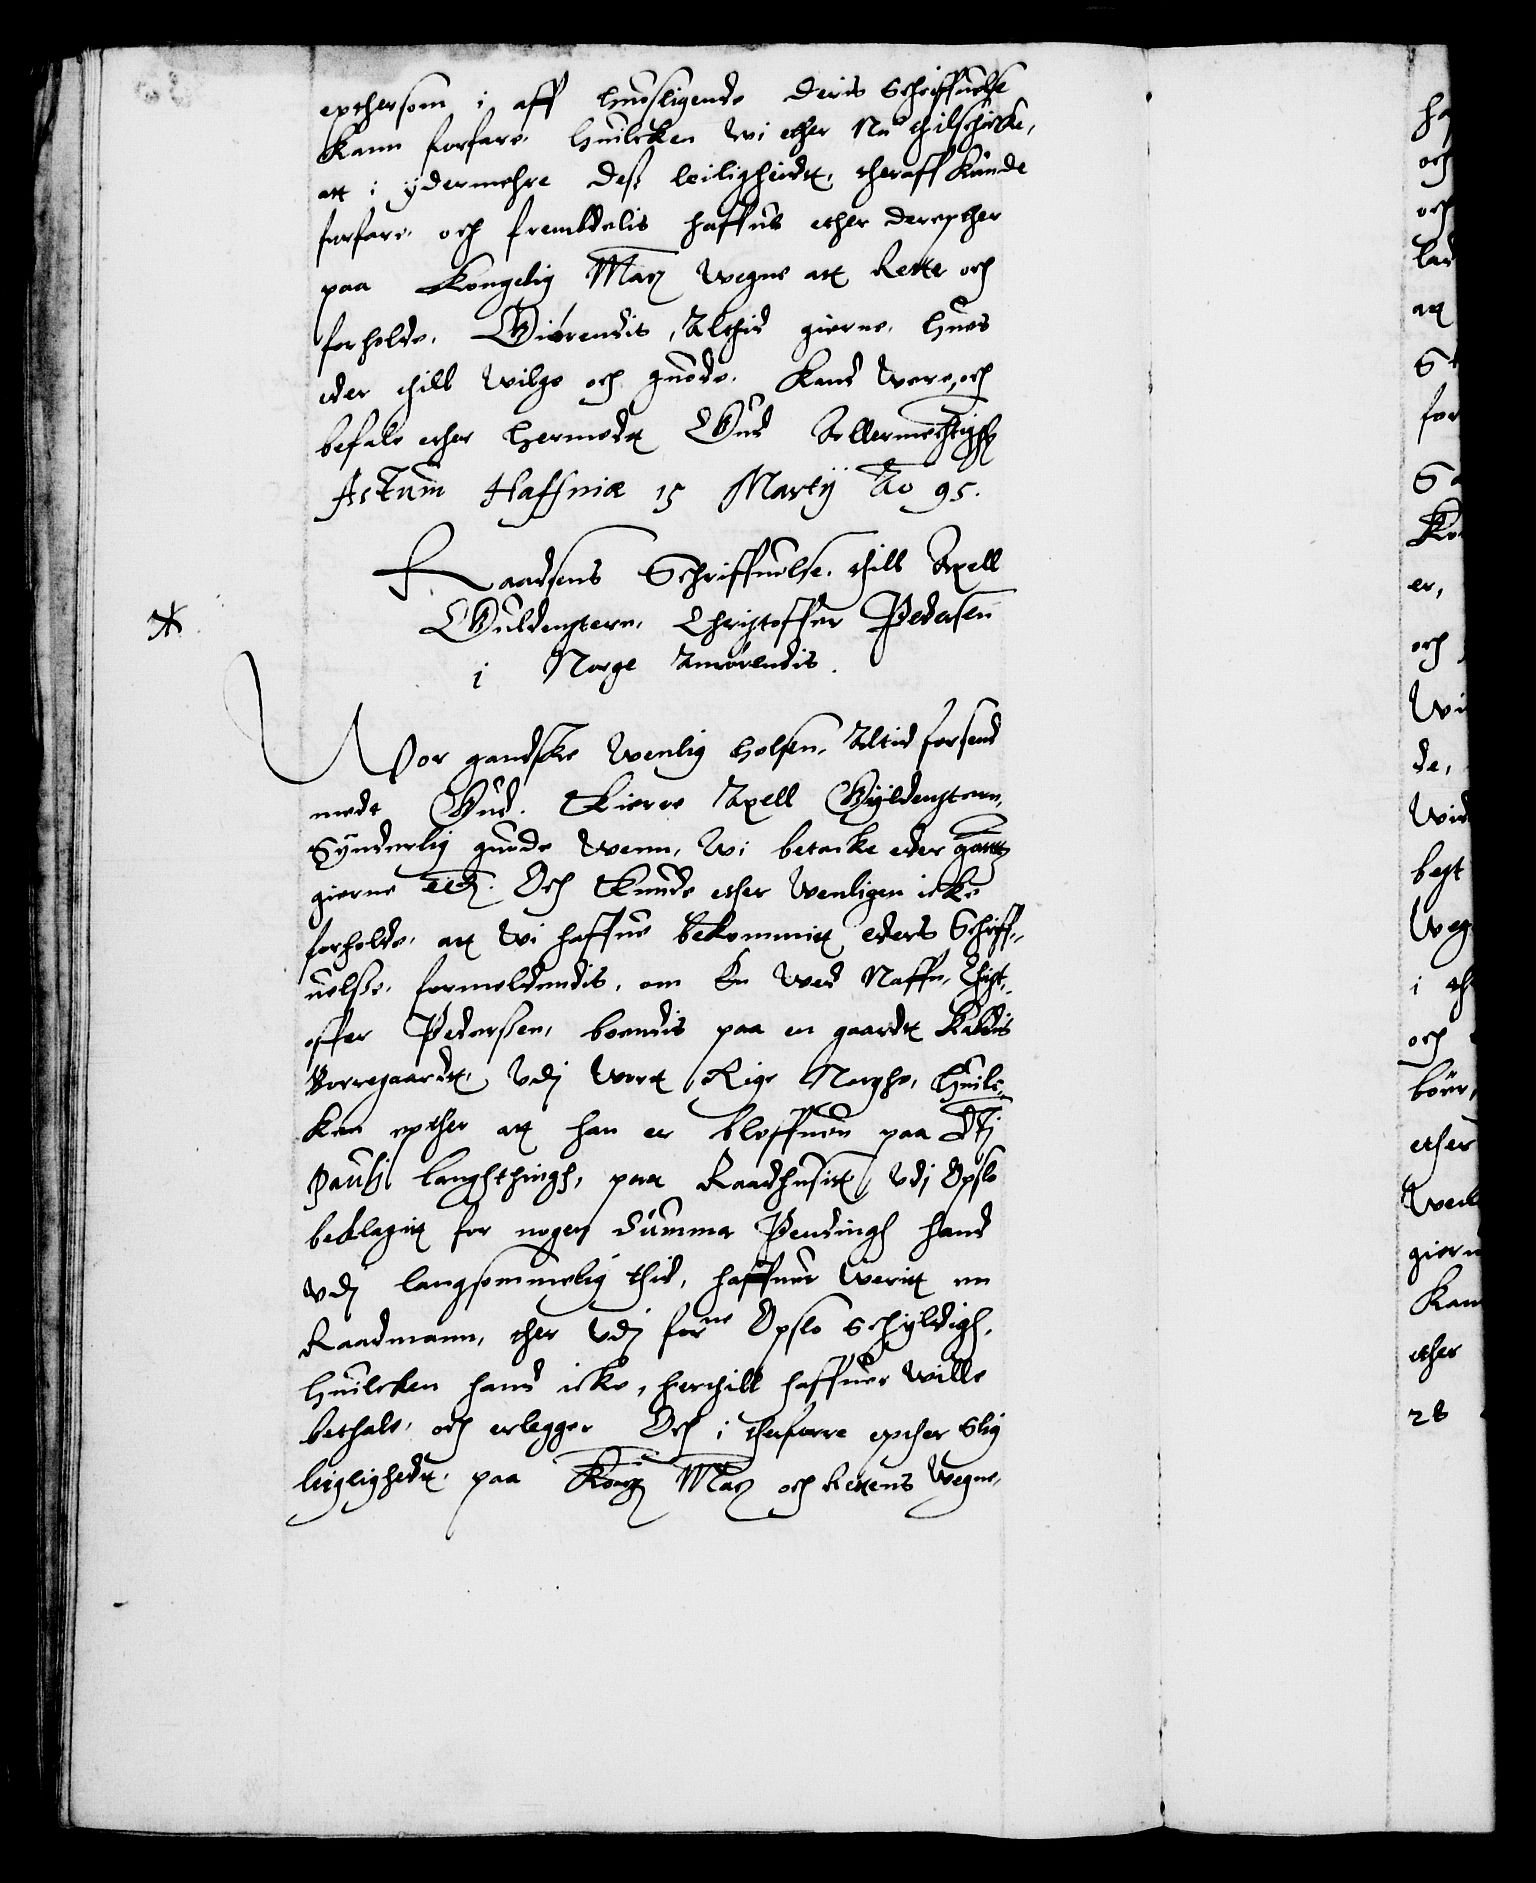 epthersom i aff huosligende deris Schriffuelse
kann forfare. Huilcken wi ether nu thilschicke,
att i ydermehre deß leiligheidt, theraff kunde
forfare. och fremdelis haffue ether derepther
paa Kongelig Maj Wegne att Rette och
forholde. Giørendis, Altid gierne, hues
eder thill wilge och guode. Kand were, och
befale ether hermedt Gud Allermechtigst
Actum Haffniæ 15 Martij Ao 95.
Raadsens Schriffuelse. thill Axell
Guldenstern, Christoffer Pedersen
i Norge Anrørendis.
Vor gandske Wenlig helsen, Altid forsend
medt Gud. Kierre Axell Gyldenstern,
Synderlig guode Wenn, Wi betacke eder gantz
gierne etc. Och kunde ether Wenligen icke
forholde, att Wi haffue bekommit eders Schriff-
uelße, formeldendis, om En Wed Naffn, Christ-
offer Pederßen, boendis paa en gaardt kaldis
Borregaardt, Vdj Wort Rige Norghe, Huilc-
ken epther att han er bleffuen paa Sti
Pauli laughthingh, paa Raadhusit, vdj Opslo
beklagit for nogen Summa Pendingh hand
vdj langsommelig thid, haffuer Werit en
Raadmann, ther vdj forne Opslo schyldigh,
Huilcken hand icke, hertill haffuer Wille
bethale, och erlegge. Och i therforre epther Slig
leiglighedt, paa Kong Maj och Rettens Wegne,
ha
och
och
lad
att
S
for
Sa
Ko
er,
och
Wi
de,
Wid
best
Weg
i th
och
bør,
ether
Wenl
giern
Kan
ether
28